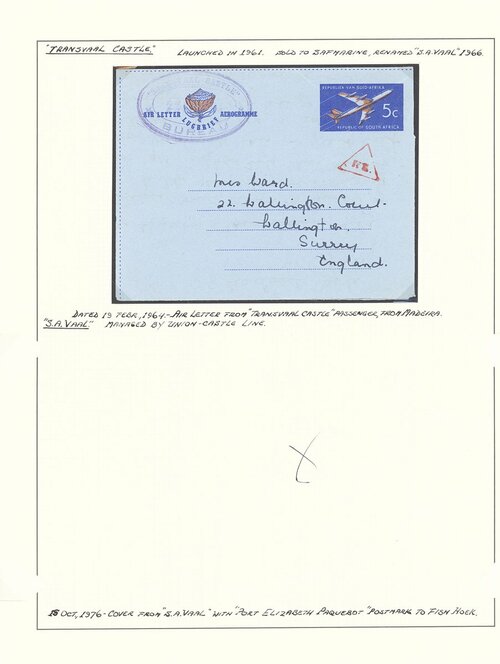 "TRANSVAAL CASTLE," LAUNCHED IN 1961. SOLD TO SAFMARINE, RENAMED "S.A. VAAL" 1966.
BUREAU
AIR LETTER AEROGRAMME
LUGBRIEF
REPUBLIEK VAN SUID-AFRIKA
5c
REPUBLIC OF SOUTH AFRICA
Mrs Ward.
22. Wallington. Court.
Wallington.
Surrey
England.
DATED 19 FEBR, 1964.-AIR LETTER FROM "TRANSVAAL CASTLE" PASSENGER, FROM MADEIRA.
"S.A. VAAL" MANAGED BY UNION-CASTLE LINE.
X
15 OCT, 1976-COVER FROM "S.A. VAAL" WITH "PORT ELIZABETH PAQUEBOT" POSTMARK TO FISH HOEK.